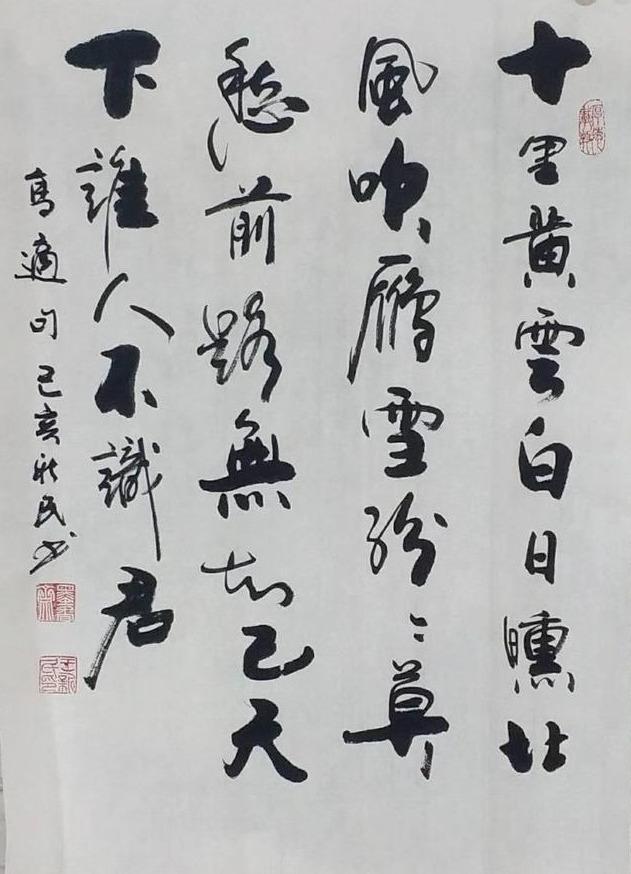 十里黄雲白日曛北
風吹鴈雪紛〻莫
愁前路無知己天
下誰人不識君
高適句己亥新民书
王新民印